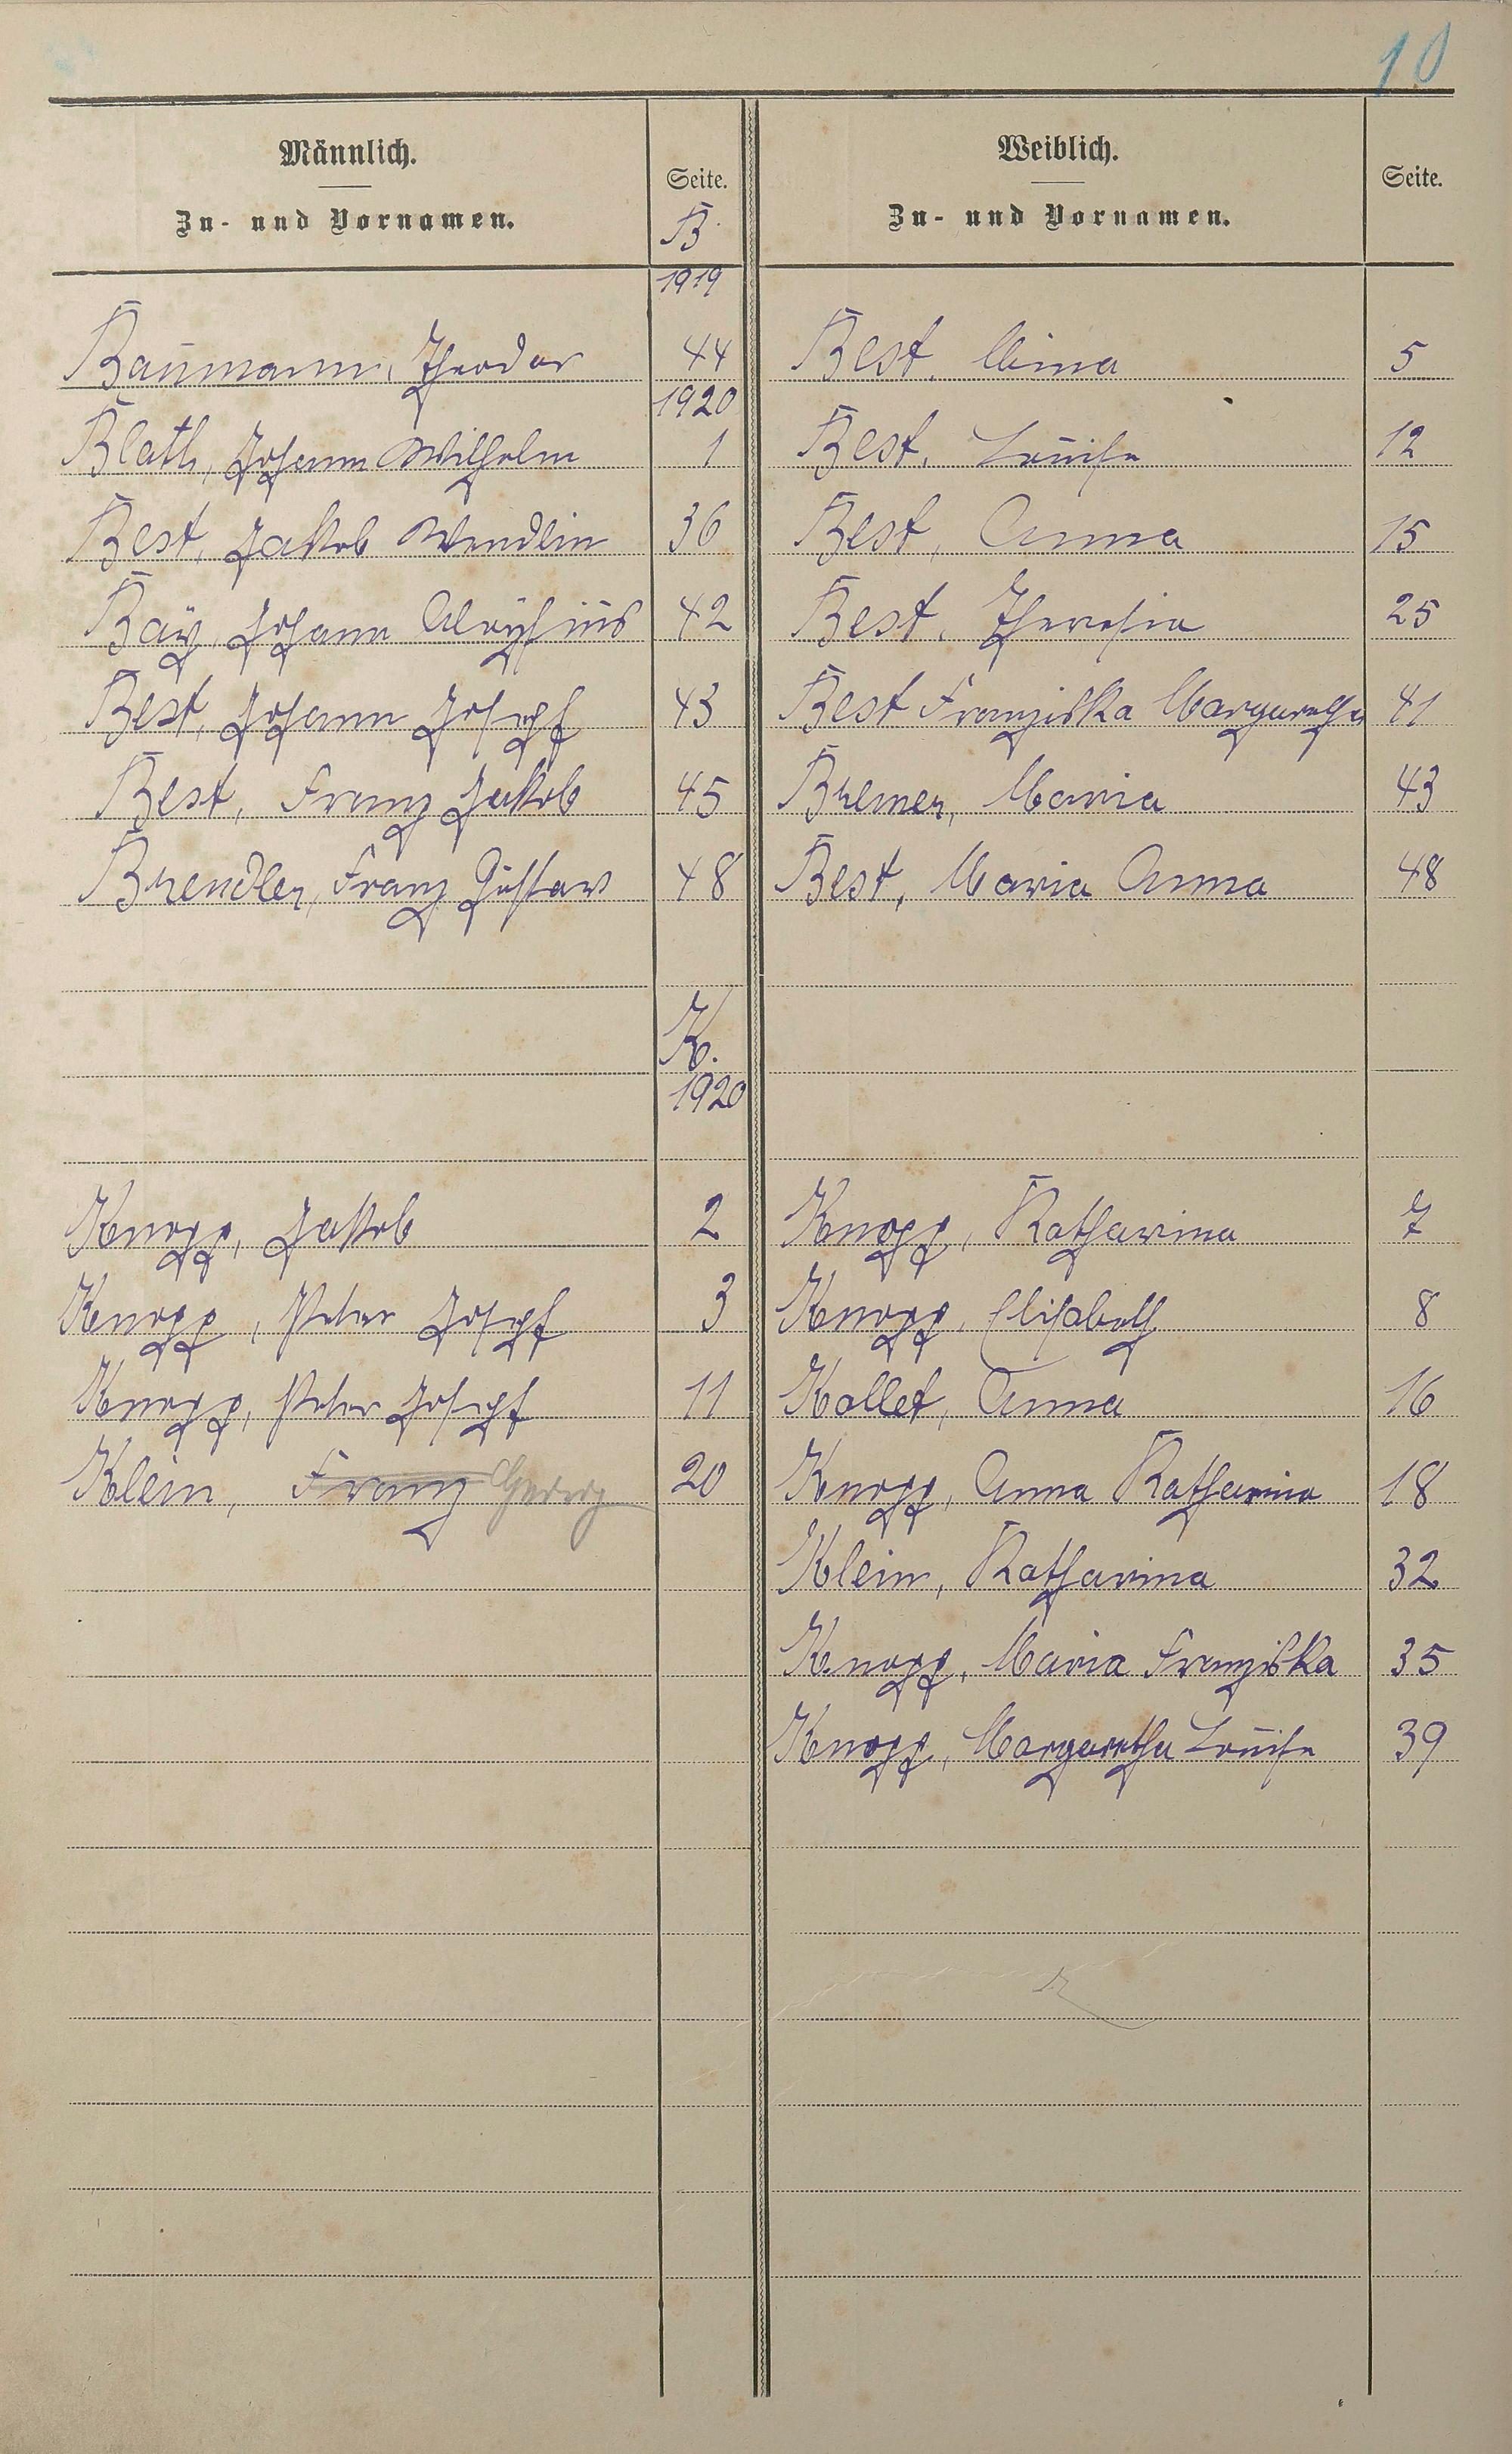 10
Männlich. Seite. Weiblich. Seite.
Zu- und Vornamen. B. Zu- und Vornamen.
1919
Baumann, Theodor 44 Best, Mina 5
1920
Blath, Johann Wilhelm 1 Best, Louise 12
Best, Jakob Wendlin 36 Best, Anna 15
Bay, Johann Aloysius 42 Best, Theresia 25
Best, Johann Joseph 43 Best Franziska Margaretha 41
Best, Franz Jakob 45 Bremer, Maria 43
Brendler, Franz Gustav 48 Best, Maria Anna 48
K.
1920
Knopp, Jakob 2 Knopp, Katharina 7
Knopp, Peter Joseph 3 Knopp, Elisabeth 8
Knopp, Peter Joseph 11 Kollet, Anna 16
Klein, Franz Georg 20 Knopp, Anna Katharina 18
Klein, Katharina 32
Knopp, Maria Franziska 35
Knopp, Margaretha Louise 39